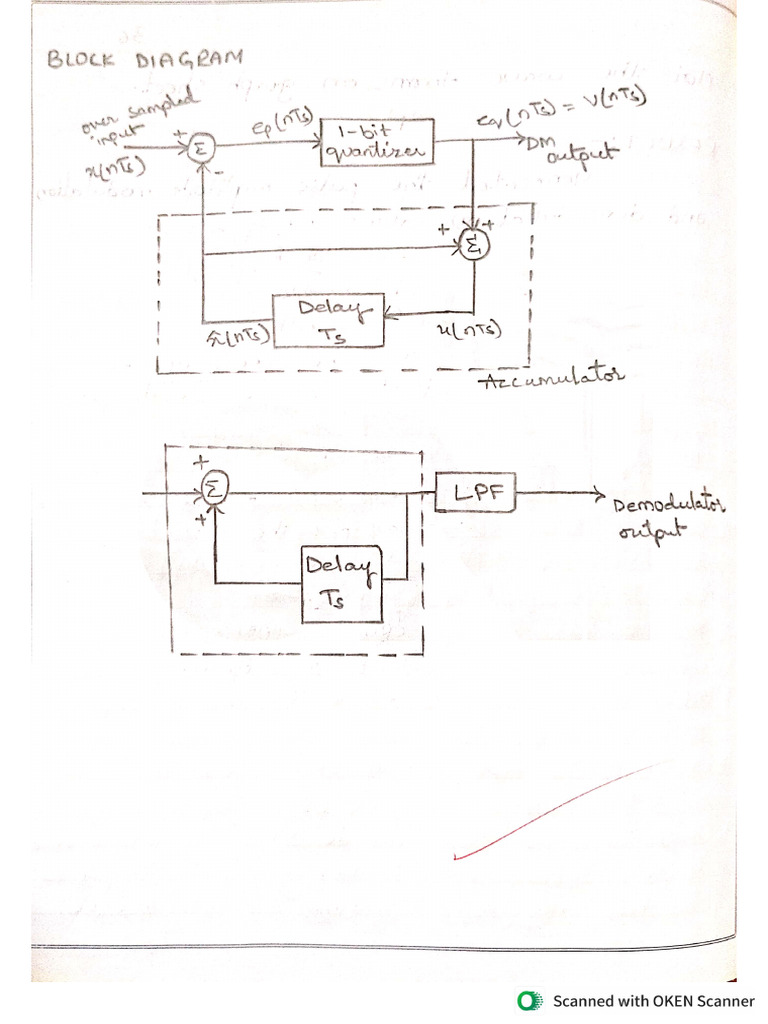 BLOCK DIAGRAM
over sampled
input
x(nTs)
+
Σ
-
ep(nTs)
1-bit
quantizer
eq(nTs) = v(nTs)
DM
output
+
+
Σ
Delay
Ts
x̂(nTs)
u(nTs)
Accumulator
+
Σ
+
LPF
Demodulator
output
Delay
Ts
Scanned with OKEN Scanner